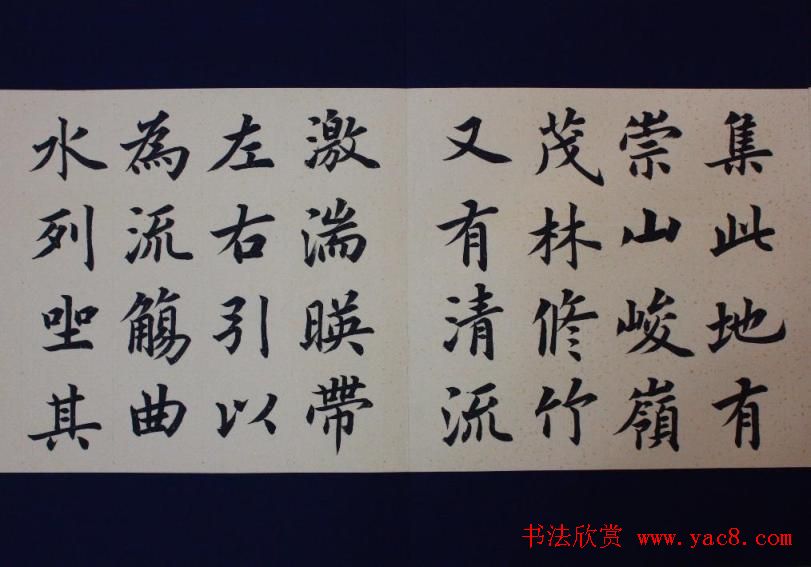 集此地有
崇山峻嶺
茂林修竹
又有清流
激湍暎帶
左右引以
為流觴曲
水列坐其
书法欣赏 www.yac8.com